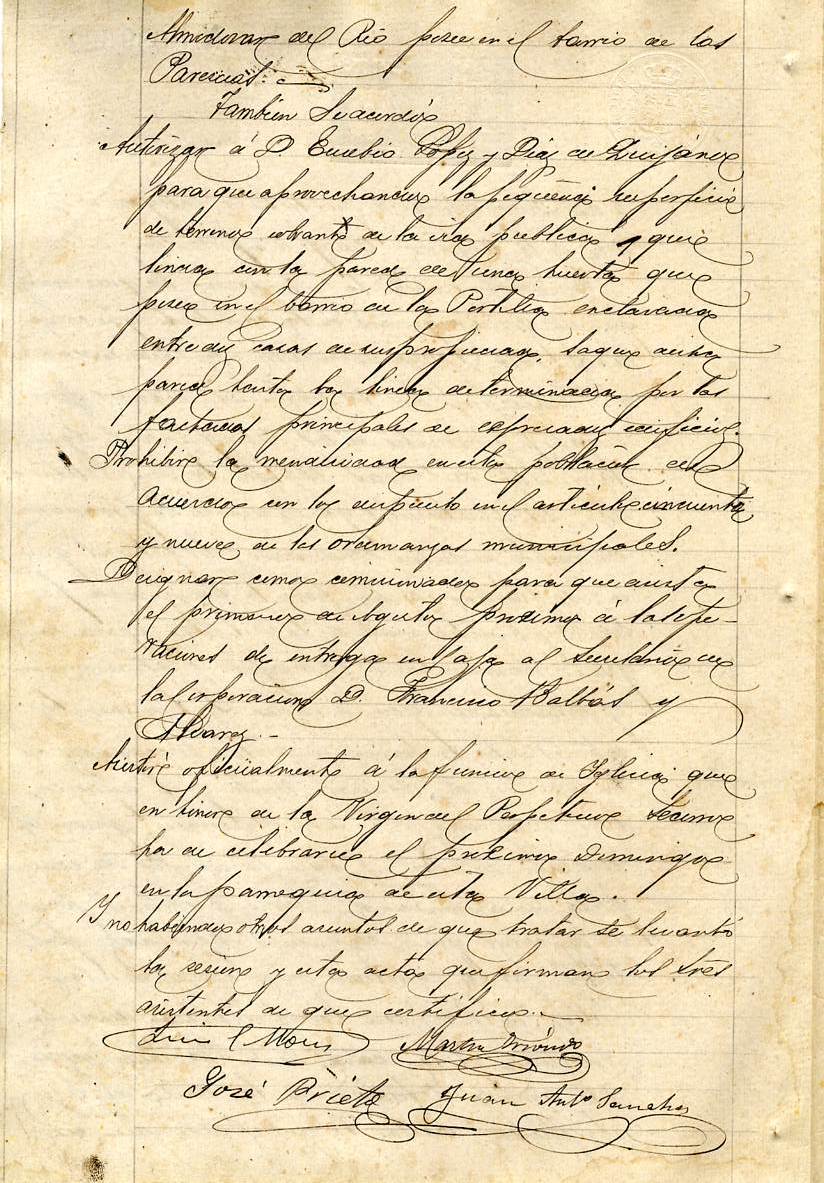 Almodovar del Rio posee en el barrio de las
Parcicas.
Tambien Se acordó
Autorizar á D. Eusebio López y Diaz de Quijano
para que aprovechando la pequeña superficie
de terreno sobrante de la via publica y que
linda con la pared de una huerta que
posee en el barrio de la Portilla enclavada
entre dos casas de su propiedad, saque dicha
pared hasta la linea determinada por las
fachadas principales de expresados edificios.
Prohibir la mendicidad en esta población de
acuerdo con lo dispuesto en el articulo cincuenta
y nueve de las ordenanzas municipales.
Designar como comisionado para que asista
el primero de Agosto proximo á las ope-
raciones de entrega en caja al Secretario de
la Corporacion D. Francisco Balbás y
Alvarez.
Asistir oficialmente á la funcion de Iglesia que
en honor de la Virgen del Perpetuo Socorro
ha de celebrarse el proximo Domingo
en la parroquia de esta Villa.
Y no habiendo otros asuntos de que tratar se levantó
la sesion y esta acta que firman los Sres
asistentes de que certifico.
Martin
José Prieto Juan Antº Sanchez